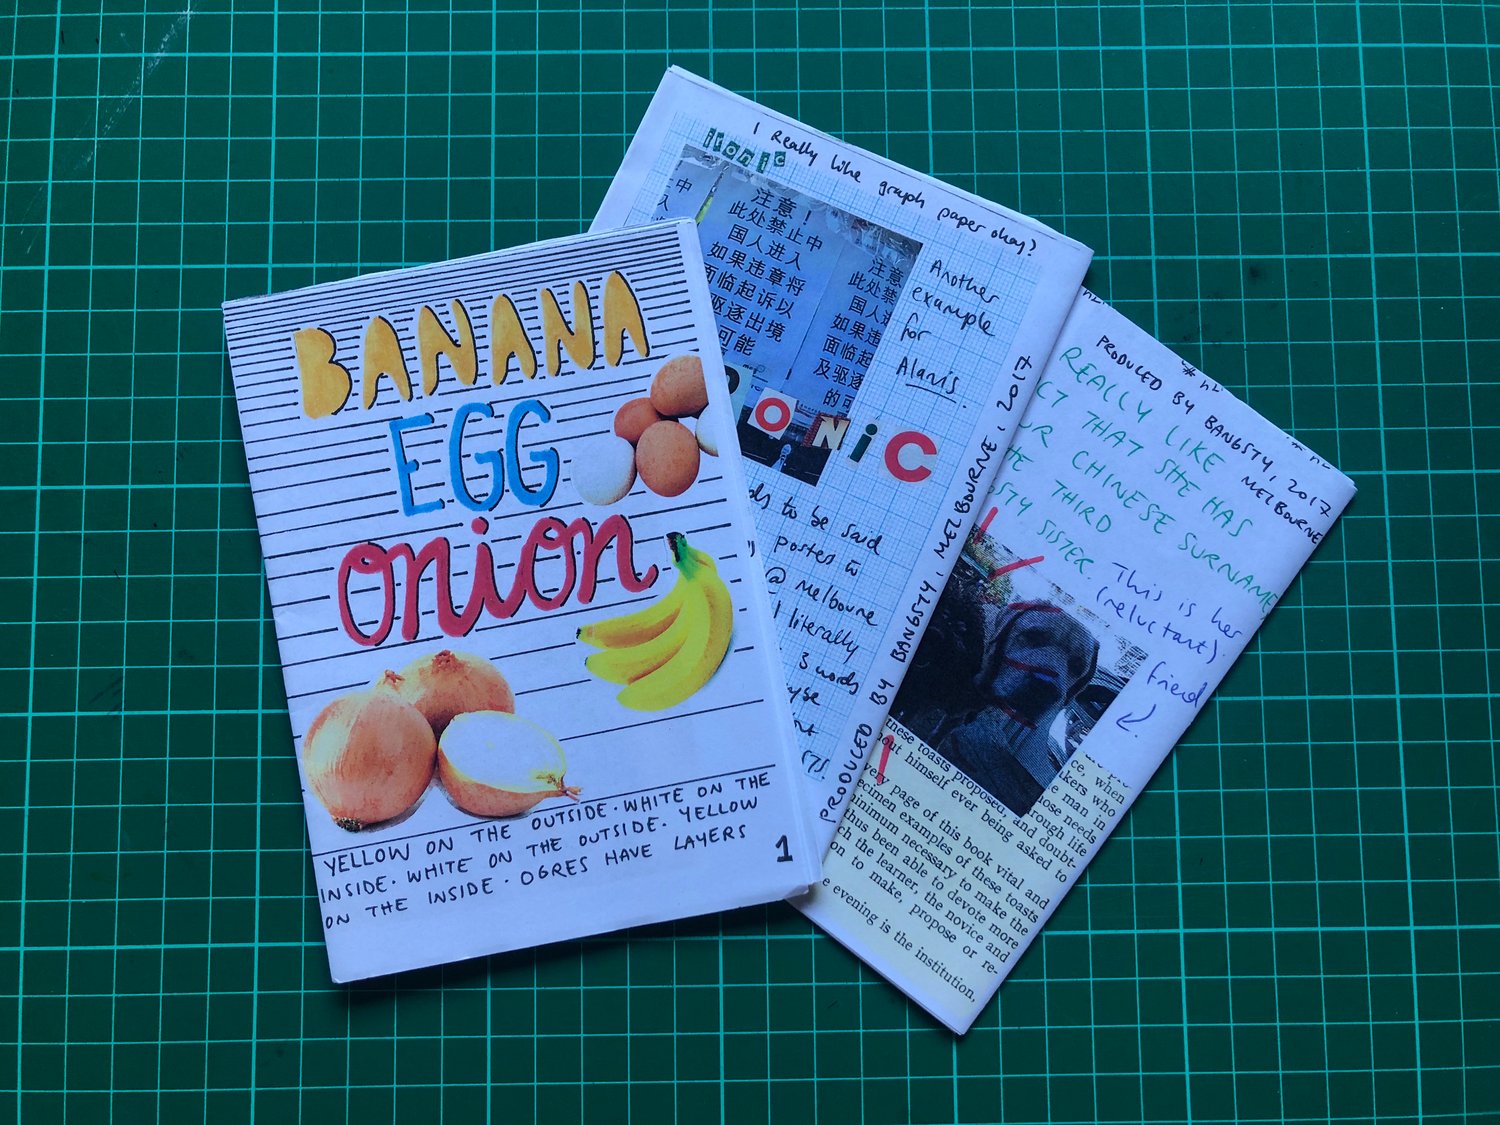 BANANA
EGG
onion
YELLOW ON THE OUTSIDE · WHITE ON THE
INSIDE · WHITE ON THE OUTSIDE · YELLOW
ON THE INSIDE · OGRES HAVE LAYERS
1
I Really like graph paper okay?
ironic
止中
入
注意！
此处禁止中
国人进入
如果违章将
面临起诉以
驱逐出境
可能
注意
此处禁
国人
如果违
面临起
及驱逐
的可
Another
example
for
Alanis.
ONiC
to be said
posters to
@ Melbourne
literally
3 words
PRODUCED BY BANGSTY, MELBOURNE, 2017
PRODUCED BY BANGSTY, 2017
MELBOURNE
REALLY LIKE
THAT SHE HAS
CHINESE SURNAME
THIRD
SISTER.
This is her
(reluctant)
friend
these toasts proposed, and doubt-
himself ever being asked to
very page of this book vital and
specimen examples of these toasts
minimum necessary to make the
thus been able to devote more
the learner, the novice and
on to make, propose or re-
evening is the institution,
ce, when
kers who
e man in
hose needs
rough life